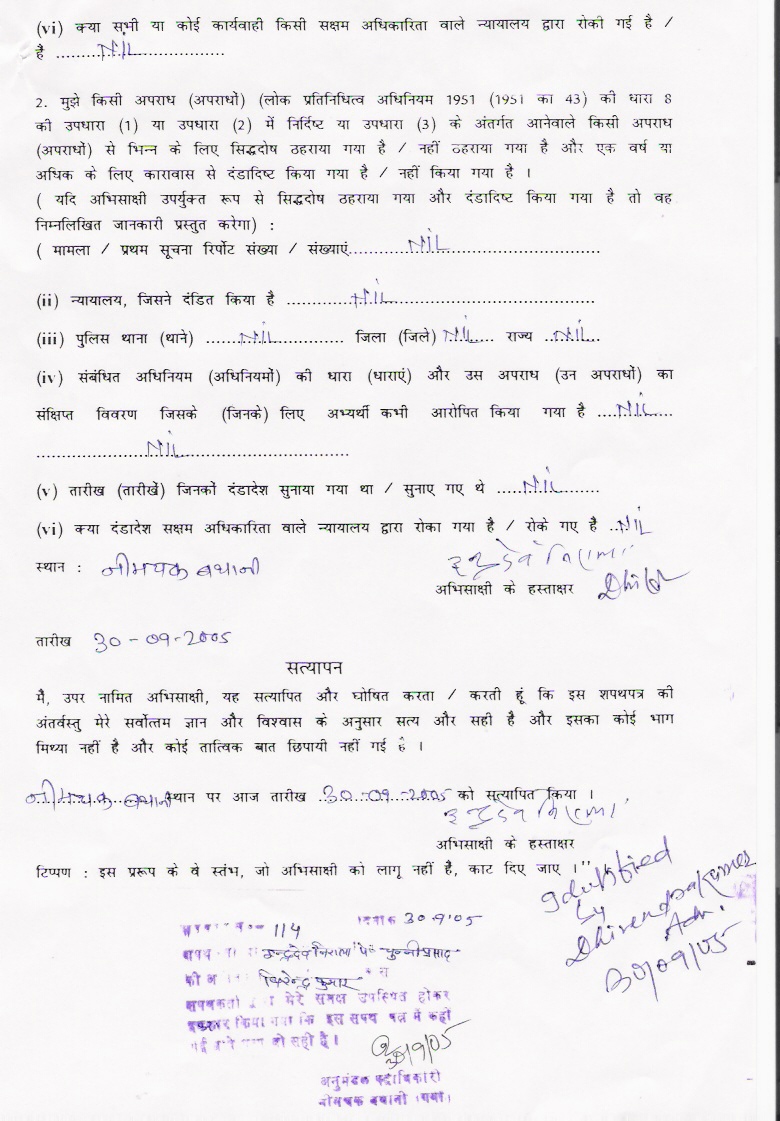 (vi) क्या सभी या कोई कार्यवाही किसी सक्षम अधिकारिता वाले न्यायालय द्वारा रोकी गई है /
है ........NIL....................
2. मुझे किसी अपराध (अपराधों) (लोक प्रतिनिधित्व अधिनियम 1951 (1951 का 43) की धारा 8
की उपधारा (1) या उपधारा (2) में निर्दिष्ट या उपधारा (3) के अंतर्गत आनेवाले किसी अपराध
(अपराधों) से भिन्न के लिए सिद्धदोष ठहराया गया है / नहीं ठहराया गया है और एक वर्ष या
अधिक के लिए कारावास से दंडादिष्ट किया गया है / नहीं किया गया है ।
( यदि अभिसाक्षी उपर्युक्त रूप से सिद्धदोष ठहराया गया और दंडादिष्ट किया गया है तो वह
निम्नलिखित जानकारी प्रस्तुत करेगा) :
( मामला / प्रथम सूचना रिर्पोट संख्या / संख्याएं..........NIL..............................
(ii) न्यायालय, जिसने दंडित किया है ............NIL........................................
(iii) पुलिस थाना (थाने) ......NIL............. जिला (जिले) NIL.... राज्य ..NIL...
(iv) संबंधित अधिनियम (अधिनियमों) की धारा (धाराएं) और उस अपराध (उन अपराधों) का
संक्षिप्त विवरण जिसके (जिनके) लिए अभ्यर्थी कभी आरोपित किया गया है ....NIL....
....................NIL..............................
(v) तारीख (तारीखें) जिनकों दंडादेश सुनाया गया था / सुनाए गए थे .....NIL.........
(vi) क्या दंडादेश सक्षम अधिकारिता वाले न्यायालय द्वारा रोका गया है / रोके गए है ..NIL
स्थान : नीमचक बथानी
अभिसाक्षी के हस्ताक्षर
तारीख 30-09-2005
सत्यापन
मै, उपर नामित अभिसाक्षी, यह सत्यापित और घोषित करता / करती हूं कि इस शपथपत्र की
अंतर्वस्तु मेरे सर्वोत्तम ज्ञान और विश्वास के अनुसार सत्य और सही है और इसका कोई भाग
मिथ्या नहीं है और कोई तात्विक बात छिपायी नहीं गई है ।
नीमचक बथानी स्थान पर आज तारीख ..30-09-2005 को सत्यापित किया ।
अभिसाक्षी के हस्ताक्षर
टिप्पण : इस प्ररूप के वे स्तंभ, जो अभिसाक्षी को लागू नहीं है, काट दिए जाए ।"
Identified
by
Dhirendra Kumar
Adv.
30/09/05
114 दिनांक 30.9.05
इन्द्रदेव निराला
की
धिरेन्द्र कुमार
मेरे समक्ष उपस्थित होकर
किया गया कि इस सपथ पत्र में कही
गई सही है ।
30/9/05
अनुमंडल पदाधिकारी
नीमचक बथानी (गया)